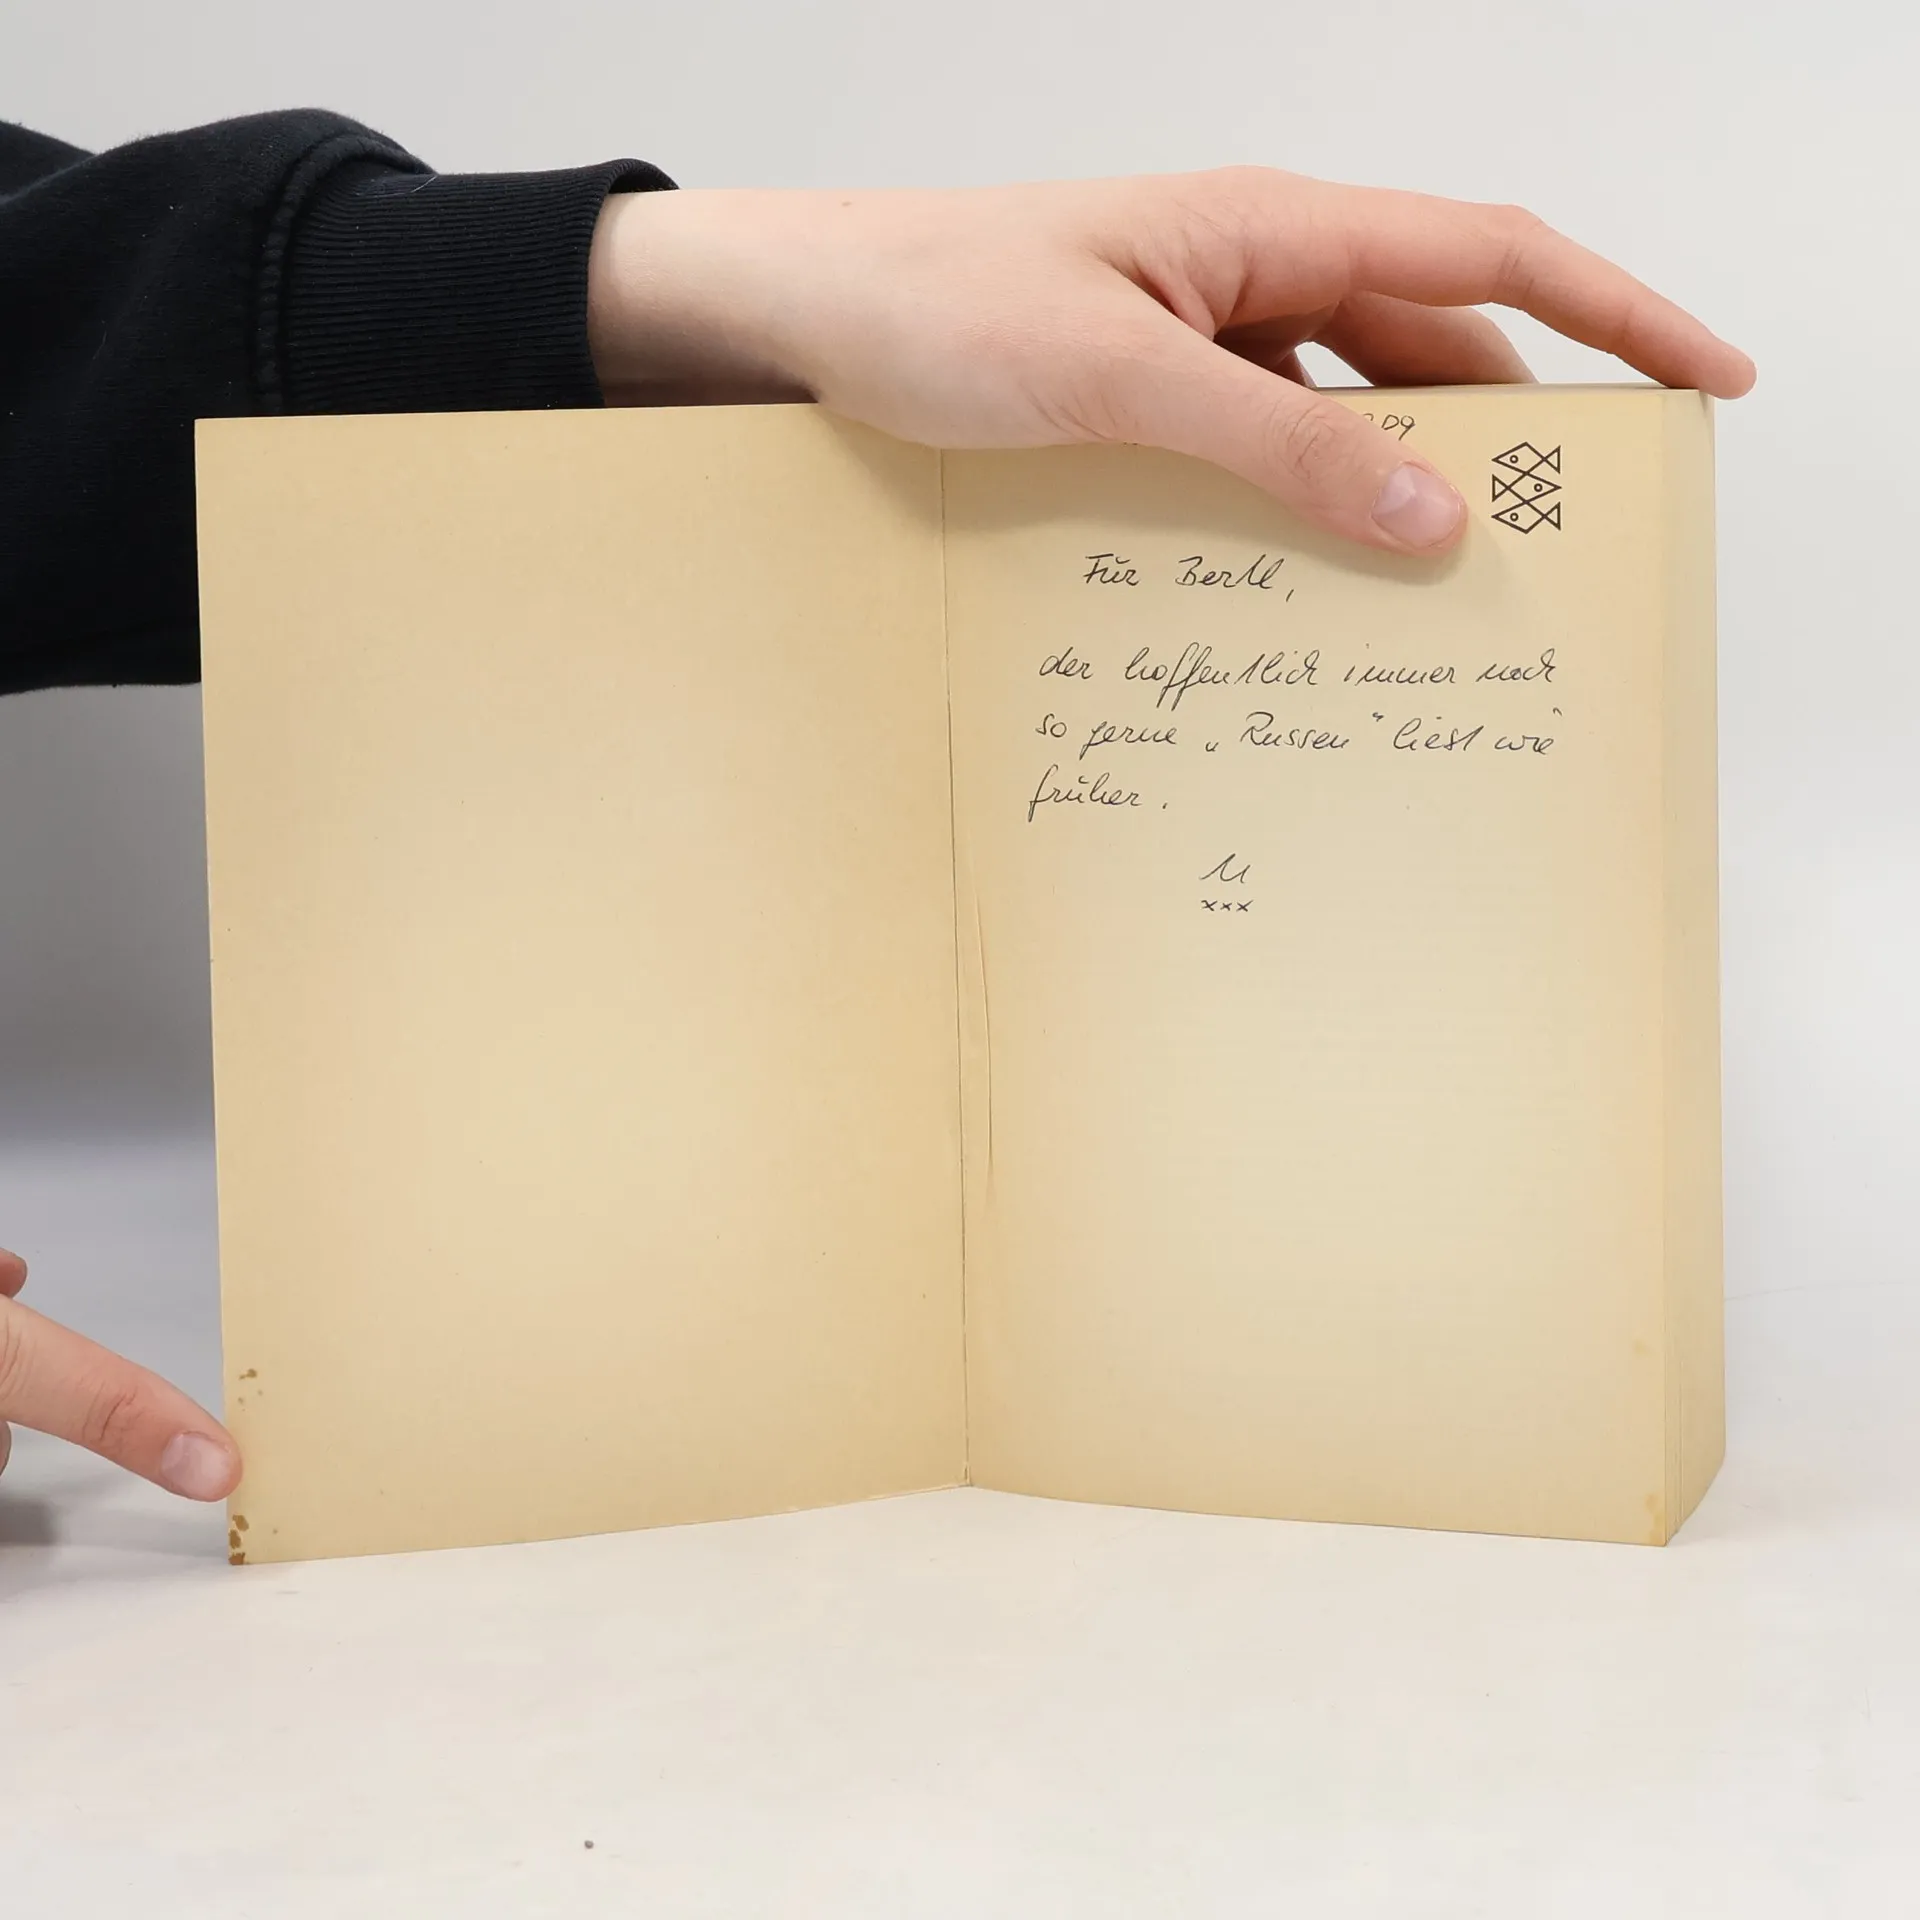 D9
Für Bertl,
der hoffentlich immer noch
so gerne „Russen" liest wie
früher.
M
xxx